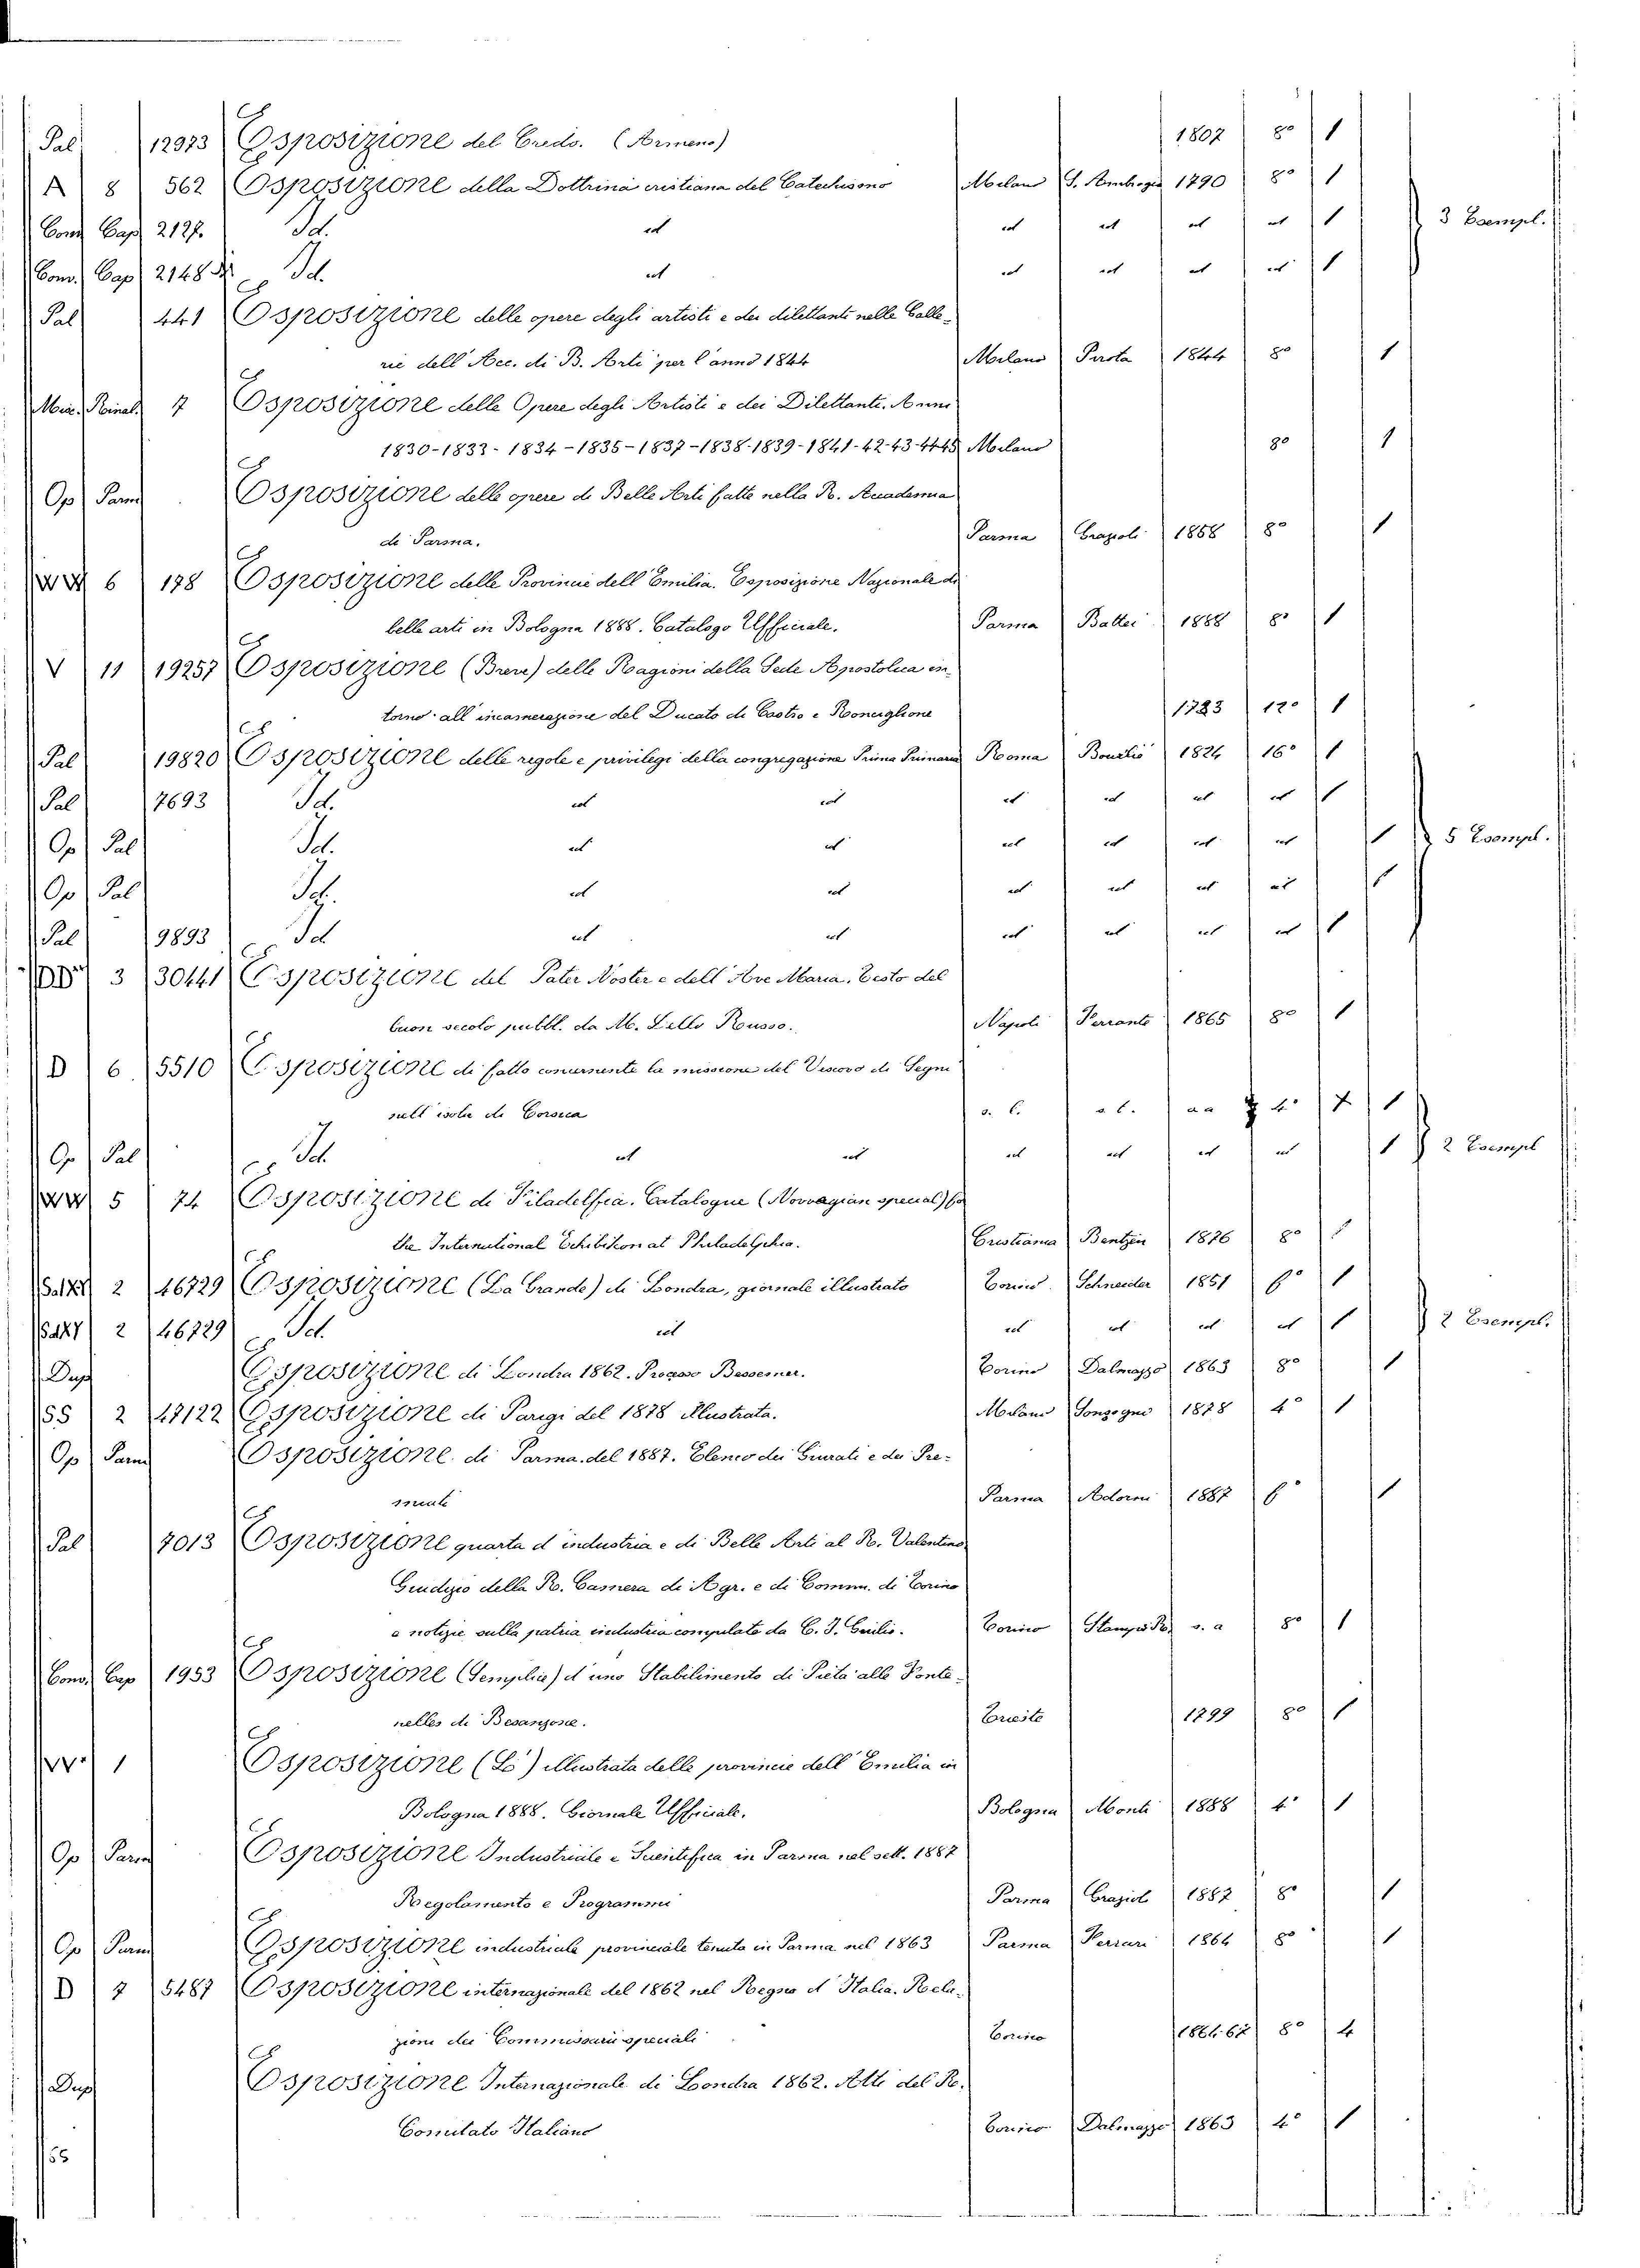 Pal 12973 Esposizione del Credo. (Armeno) 1807 8° 1
A 8 562 Esposizione della Dottrina cristiana del Catechismo Milano S. Ambrogio 1790 8° 1
Conv Cap 2127. Id. id id id id id 1 3 Esempl.
Conv. Cap 2148 Id. id id id id id 1
Pal 441 Esposizione delle opere degli artisti e dei dilettanti nelle Galle-
rie dell'Acc. di B. Arti per l'anno 1844 Milano Pirota 1844 8° 1
Misc. Reinal. 7 Esposizione delle Opere degli Artisti e dei Dilettanti. Anni
1830-1833-1834-1835-1837-1838-1839-1841-42-43-44-45 Milano 8° 1
Op Parm Esposizione delle opere di Belle Arti fatte nella R. Accademia
di Parma. Parma Grazioli 1858 8° 1
WW 6 178 Esposizione delle Provincie dell'Emilia. Esposizione Nazionale di
belle arti in Bologna 1888. Catalogo Ufficiale. Parma Battei 1888 8° 1
V 11 19257 Esposizione (Breve) delle Ragioni della Sede Apostolica in-
torno all'incamerazione del Ducato di Castro e Ronciglione 1723 12° 1
Pal 19820 Esposizione delle regole e privilegi della congregazione Prima Primaria Roma Bourliè 1824 16° 1
Pal 7693 Id. id id id id id id 1
Op Pal Id. id id id id id id 1 5 Esempl.
Op Pal Id. id id id id id id 1
Pal 9893 Id id id id id id id 1
DD 3 30441 Esposizione del Pater Noster e dell'Ave Maria. Testo del
buon secolo pubbl. da M. Lello Rousso. Napoli Ferrante 1865 8° 1
D 6 5510 Esposizione di fatto concernente la missione del Vescovo di Segni
nell'isola di Corsica s. l. s. l. aa 4° 1
Op Pal Id. id id id id id id 1 2 Esempl
WW 5 74 Esposizione di Filadelfia. Catalogue (Norvagian special) fo
the International Echibition at Philadelphia. Cristiania Bentzen 1876 8° 1
Salxx 2 46729 Esposizione (La Grande) di Londra, giornale illustrato Torino. Schneider 1851 1
2 46729 Id. id id id id id 1 2 Esempl.
Dup Esposizione di Londra 1862. Processo Bessemer. Torino Dalmazzo 1863 8° 1
SS 2 47122 Esposizione di Parigi del 1878 illustrata. Milano Sonzogno 1878 4° 1
Op Parm Esposizione di Parma del 1887. Elenco dei Giurati e dei Pre-
miati Parma Adorni 1887 1
Pal 7013 Esposizione quarta d'industria e di Belle Arti al R. Valentino.
Giudizio della R. Camera di Agr. e di Comm. di Torino
e notizie sulla patria industria compilate da C. I. Giulio. Torino Stamp. R. s. a 8° 1
Conv. Cap 1953 Esposizione (Semplice) d'uno Stabilimento di Pietà alle Fonte-
nelles di Besanzone. Trieste 1799 8° 1
1 Esposizione (L') illustrata delle provincie dell'Emilia in
Bologna 1888. Giornale Ufficiale. Bologna Monti 1888 4° 1
Op Parm Esposizione Industriale e Scientifica in Parma nel sett. 1887
Regolamento e Programmi Parma Grazioli 1887 8° 1
Op Parm Esposizione industriale provinciale tenuta in Parma nel 1863 Parma Ferrari 1864 8° 1
D 7 5487 Esposizione internazionale del 1862 nel Regno d'Italia. Rela-
zioni dei Commissari speciali Torino 1864-67 8° 4
Dup Esposizione Internazionale di Londra 1862. Atti del R.
Comitato Italiano Torino Dalmazzo 1863 4° 1
55